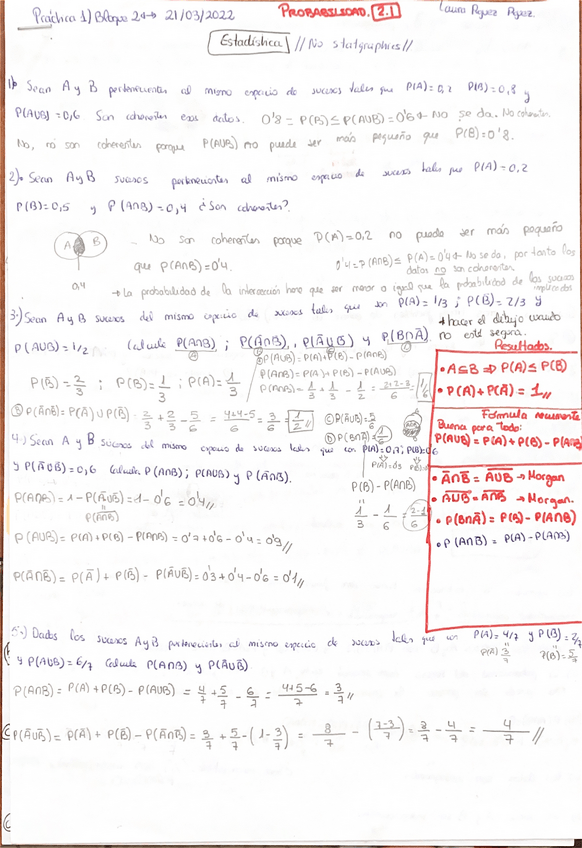 Práctica 1) Bloque 2 → 21/03/2022
PROBABILIDAD. 2.1
Laura Pguez Pguez.
Estadística // No statgraphics //
1) Sean A y B pertenecientes al mismo espacio de sucesos tales que P(A)=0,2 P(B)=0,8 y
P(AUB)=0,6 Son coherentes esos datos. 0'8 = P(B) ≤ P(AUB)=0'6 → No se da. No coherentes.
No, no son coherentes porque P(AUB) no puede ser más pequeño que P(B)=0'8.
2) Sean A y B sucesos pertenecientes al mismo espacio de sucesos tales que P(A)=0,2
P(B)=0,5 y P(A∩B)=0,4 ¿Son coherentes?
A B
0,4
- No son coherentes porque P(A)=0,2 no puede ser más pequeño
que P(A∩B)=0'4.
0'4=P(A∩B) ≤ P(A)=0'4 → No se da, por tanto los
datos no son coherentes
→ La probabilidad de la intersección tiene que ser menor o igual que la probabilidad de los sucesos
implicados
3) Sean A y B sucesos del mismo espacio de sucesos tales que son P(A)=1/3 ; P(B)=2/3 y
* hacer el dibujo cuando
no esté segura.
P(AUB)=1/2 Calcule P(A∩B) ; P(Ā∩B̄), P(ĀUB̄) y P(B∩Ā)
P(AUB)=P(A)+P(B)-P(A∩B)
P(A∩B)=P(A)+P(B)-P(AUB)
P(B̄)=2/3 ; P(B)=1/3 ; P(A)=1/3
P(A∩B)=1/3+1/3-1/2=2+2-3/6=1/6
b) P(Ā∩B̄)=P(Ā)UP(B̄)=2/3+2/3-5/6=4+4-5/6=3/6=1/2 //
c) P(ĀUB̄)=5/6
d) P(B∩Ā)=1/6
P(B)-P(A∩B)
1/3 - 1/6 = 2-1/6
4) Sean A y B sucesos del mismo espacio de sucesos tales que son P(A)=0,7; P(B)=0,6
y P(ĀUB̄)=0,6 Calcule P(A∩B); P(AUB) y P(Ā∩B̄).
P(A∩B)=1-P(ĀUB̄)=1-0'6=0'4 //
P(AUB)=P(A)+P(B)-P(A∩B)=0'7+0'6-0'4=0'9 //
P(Ā∩B̄)=P(Ā)+P(B̄)-P(ĀUB̄)=0'3+0'4-0'6=0'1 //
Resultados.
• A⊆B ⇒ P(A) ≤ P(B)
• P(A)+P(Ā)=1 //
Fórmula recurrente
Buena para todo:
P(AUB)=P(A)+P(B)-P(A∩B)
• Ā∩B̄ = AUB → Morgan
• ĀUB̄ = A∩B → Morgan.
• P(B∩Ā)=P(B)-P(A∩B)
• P(A∩B̄)=P(A)-P(A∩B)
5) Dados los sucesos A y B pertenecientes al mismo espacio de sucesos tales que son P(A)=4/7 y P(B)=2/7
P(Ā)=3/7 P(B̄)=5/7
y P(AUB)=6/7 Calcule P(A∩B) y P(ĀUB̄).
P(A∩B)=P(A)+P(B)-P(AUB)=4/7+5/7-6/7=4+5-6/7=3/7 //
P(ĀUB̄)=P(Ā)+P(B̄)-P(Ā∩B̄)=3/7+5/7-(1-3/7)=8/7-(7-3/7)=8/7-4/7=4/7 //